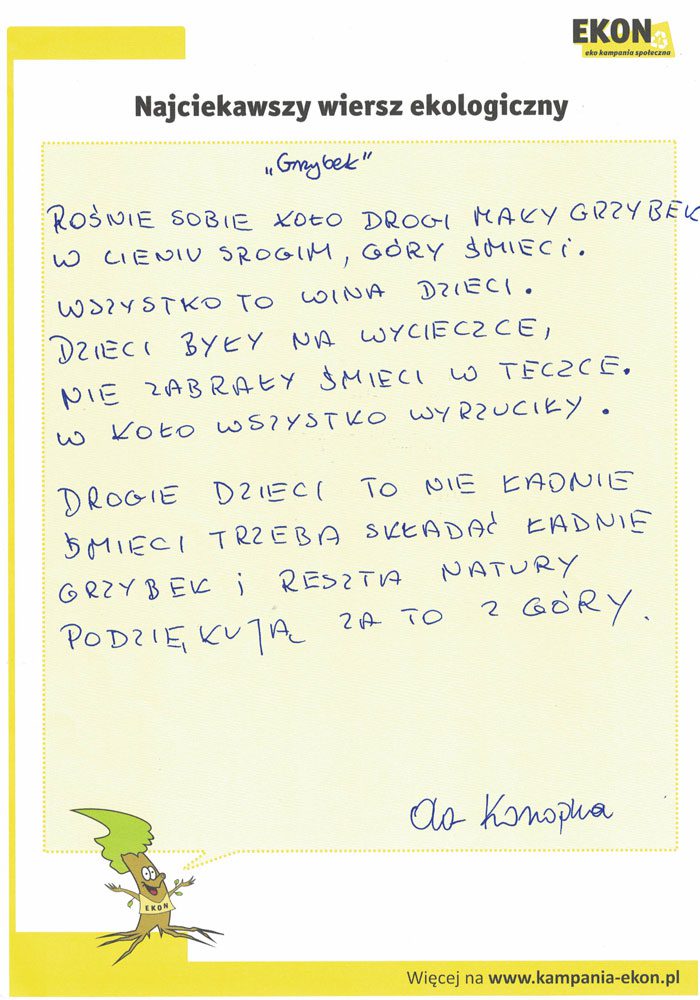 EKON
eko kampania społeczna
Najciekawszy wiersz ekologiczny
„Grzybek"
ROŚNIE SOBIE KOŁO DROGI MAŁY GRZYBEK
W CIENIU SROGIM, GÓRY ŚMIECI.
WSZYSTKO TO WINA DZIECI.
DZIECI BYŁY NA WYCIECZCE,
NIE ZABRAŁY ŚMIECI W TECZCE.
W KOŁO WSZYSTKO WYRZUCIŁY.
DROGIE DZIECI TO NIE ŁADNIE
ŚMIECI TRZEBA SKŁADAĆ ŁADNIE
GRZYBEK i RESZTA NATURY
PODZIĘKUJĄ ZA TO Z GÓRY.
Ola Konopka
EKON
Więcej na www.kampania-ekon.pl